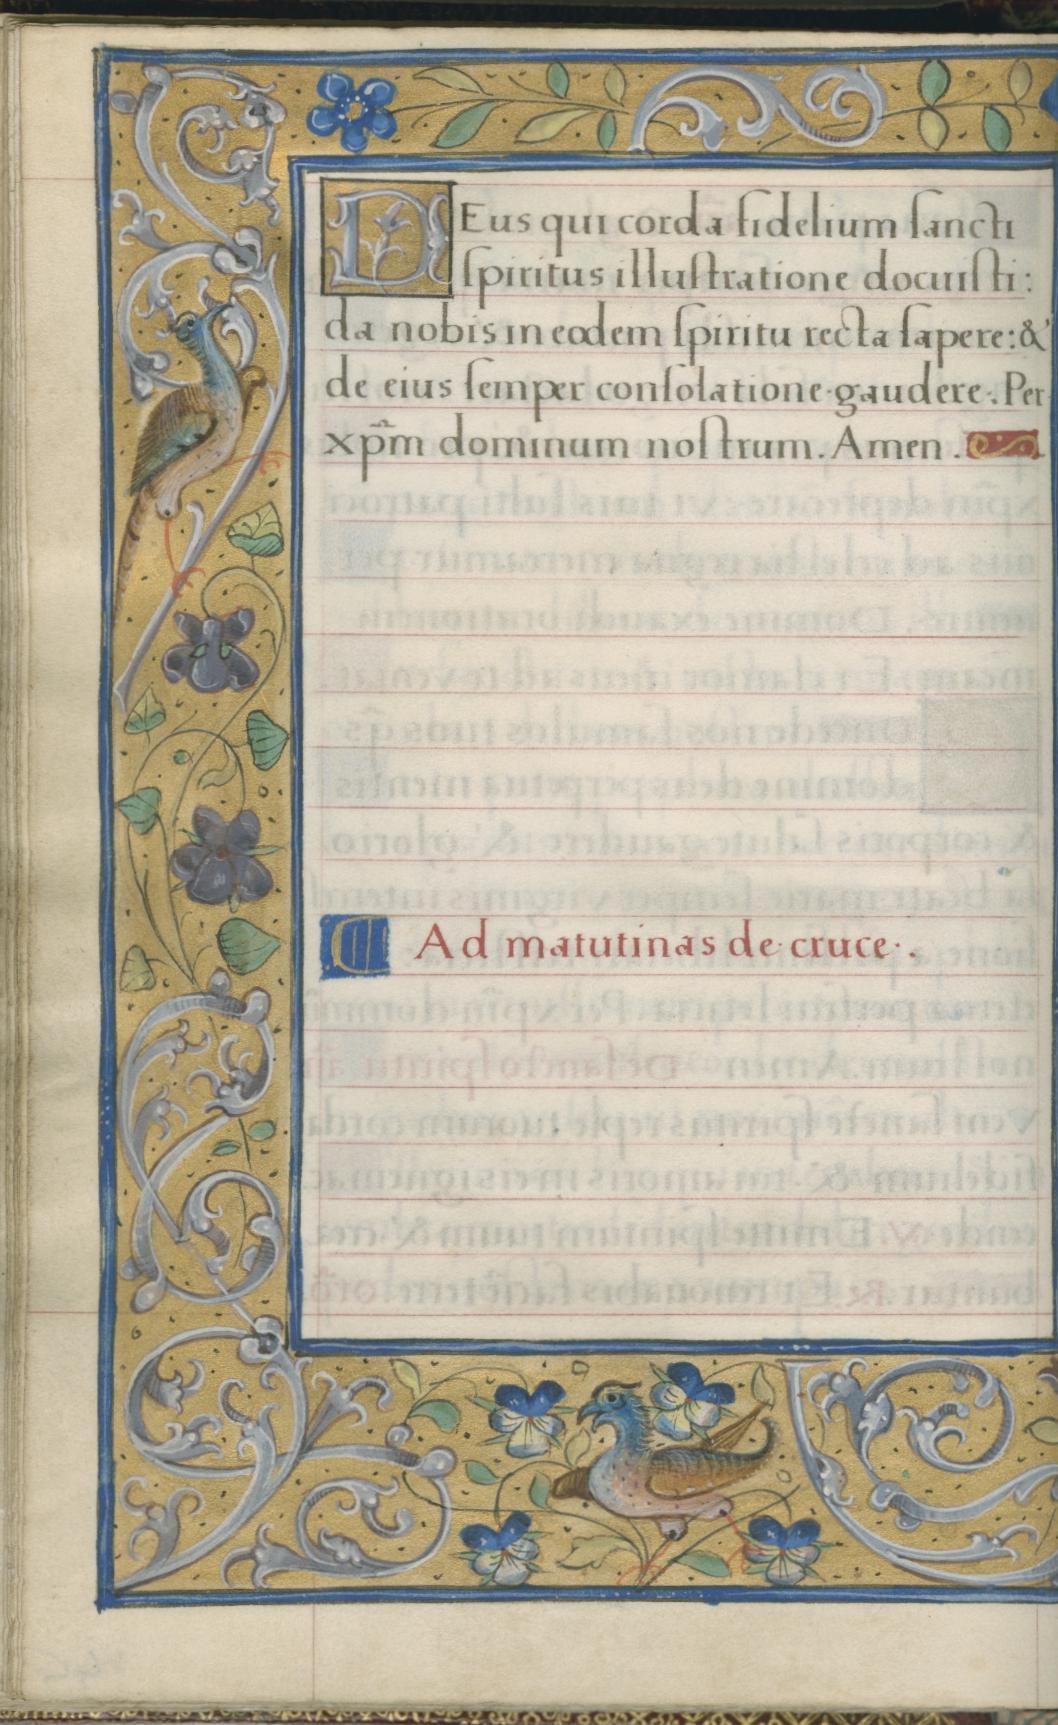 DEus qui corda fidelium ſancti
ſpiritus illuſtratione docuiſti:
da nobis in eodem ſpiritu recta ſapere: &
de eius ſemper conſolatione gaudere. Per
xp̄m dominum noſtrum. Amen.
Ad matutinas de cruce.